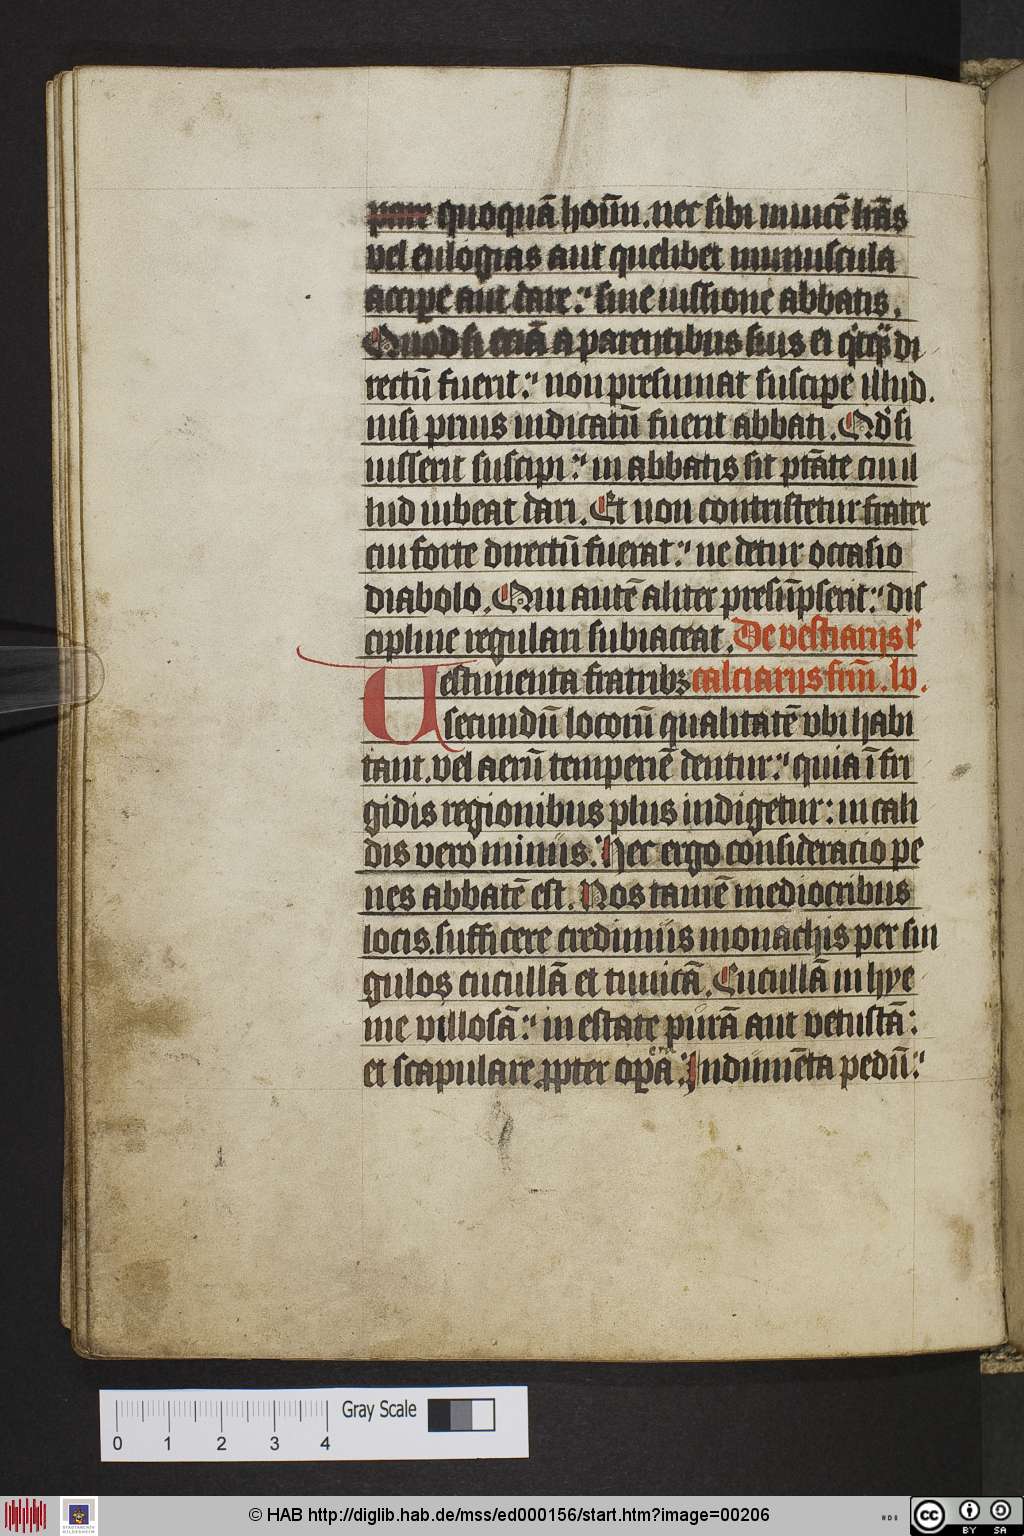 pare quoquā hoīm. nec sibi inuicē lrās
vel eulogias aut quelibet munuscula
accipe aut dare: sine iussione abbatis.
Quod si etiā a parentibus suis ei di
rectū fuerit: non presumat suscipe illud.
nisi prius indicatū fuerit abbati. Qd si
iusserit suscipi: in abbatis sit ptāte cui il
lud iubeat dari. Et non contristetur frater
cui forte directū fuerat: ne detur occasio
diabolo. Qui autē aliter presūpserit: dis
cipline regulari subiaceat. De vestiarijs l'
Vestimenta fratribꝫ calciarijs frm̄. lv.
secundū locorū qualitatē vbi habi
tant. vel aerū temperiē dentur: quia ī fri
gidis regionibus plus indigetur: in cali
dis vero minus. Hec ergo consideracio pe
nes abbatē est. Nos tamē mediocribus
locis. sufficere credimus monachis per sin
gulos cucullā et tunicā. Cucullā in hye
me villosā: in estate purā aut vetustā:
et scapulare ꝓpter opa. Indumēta pedū:
0 1 2 3 4 Gray Scale
© HAB http://diglib.hab.de/mss/ed000156/start.htm?image=00206
cc BY SA